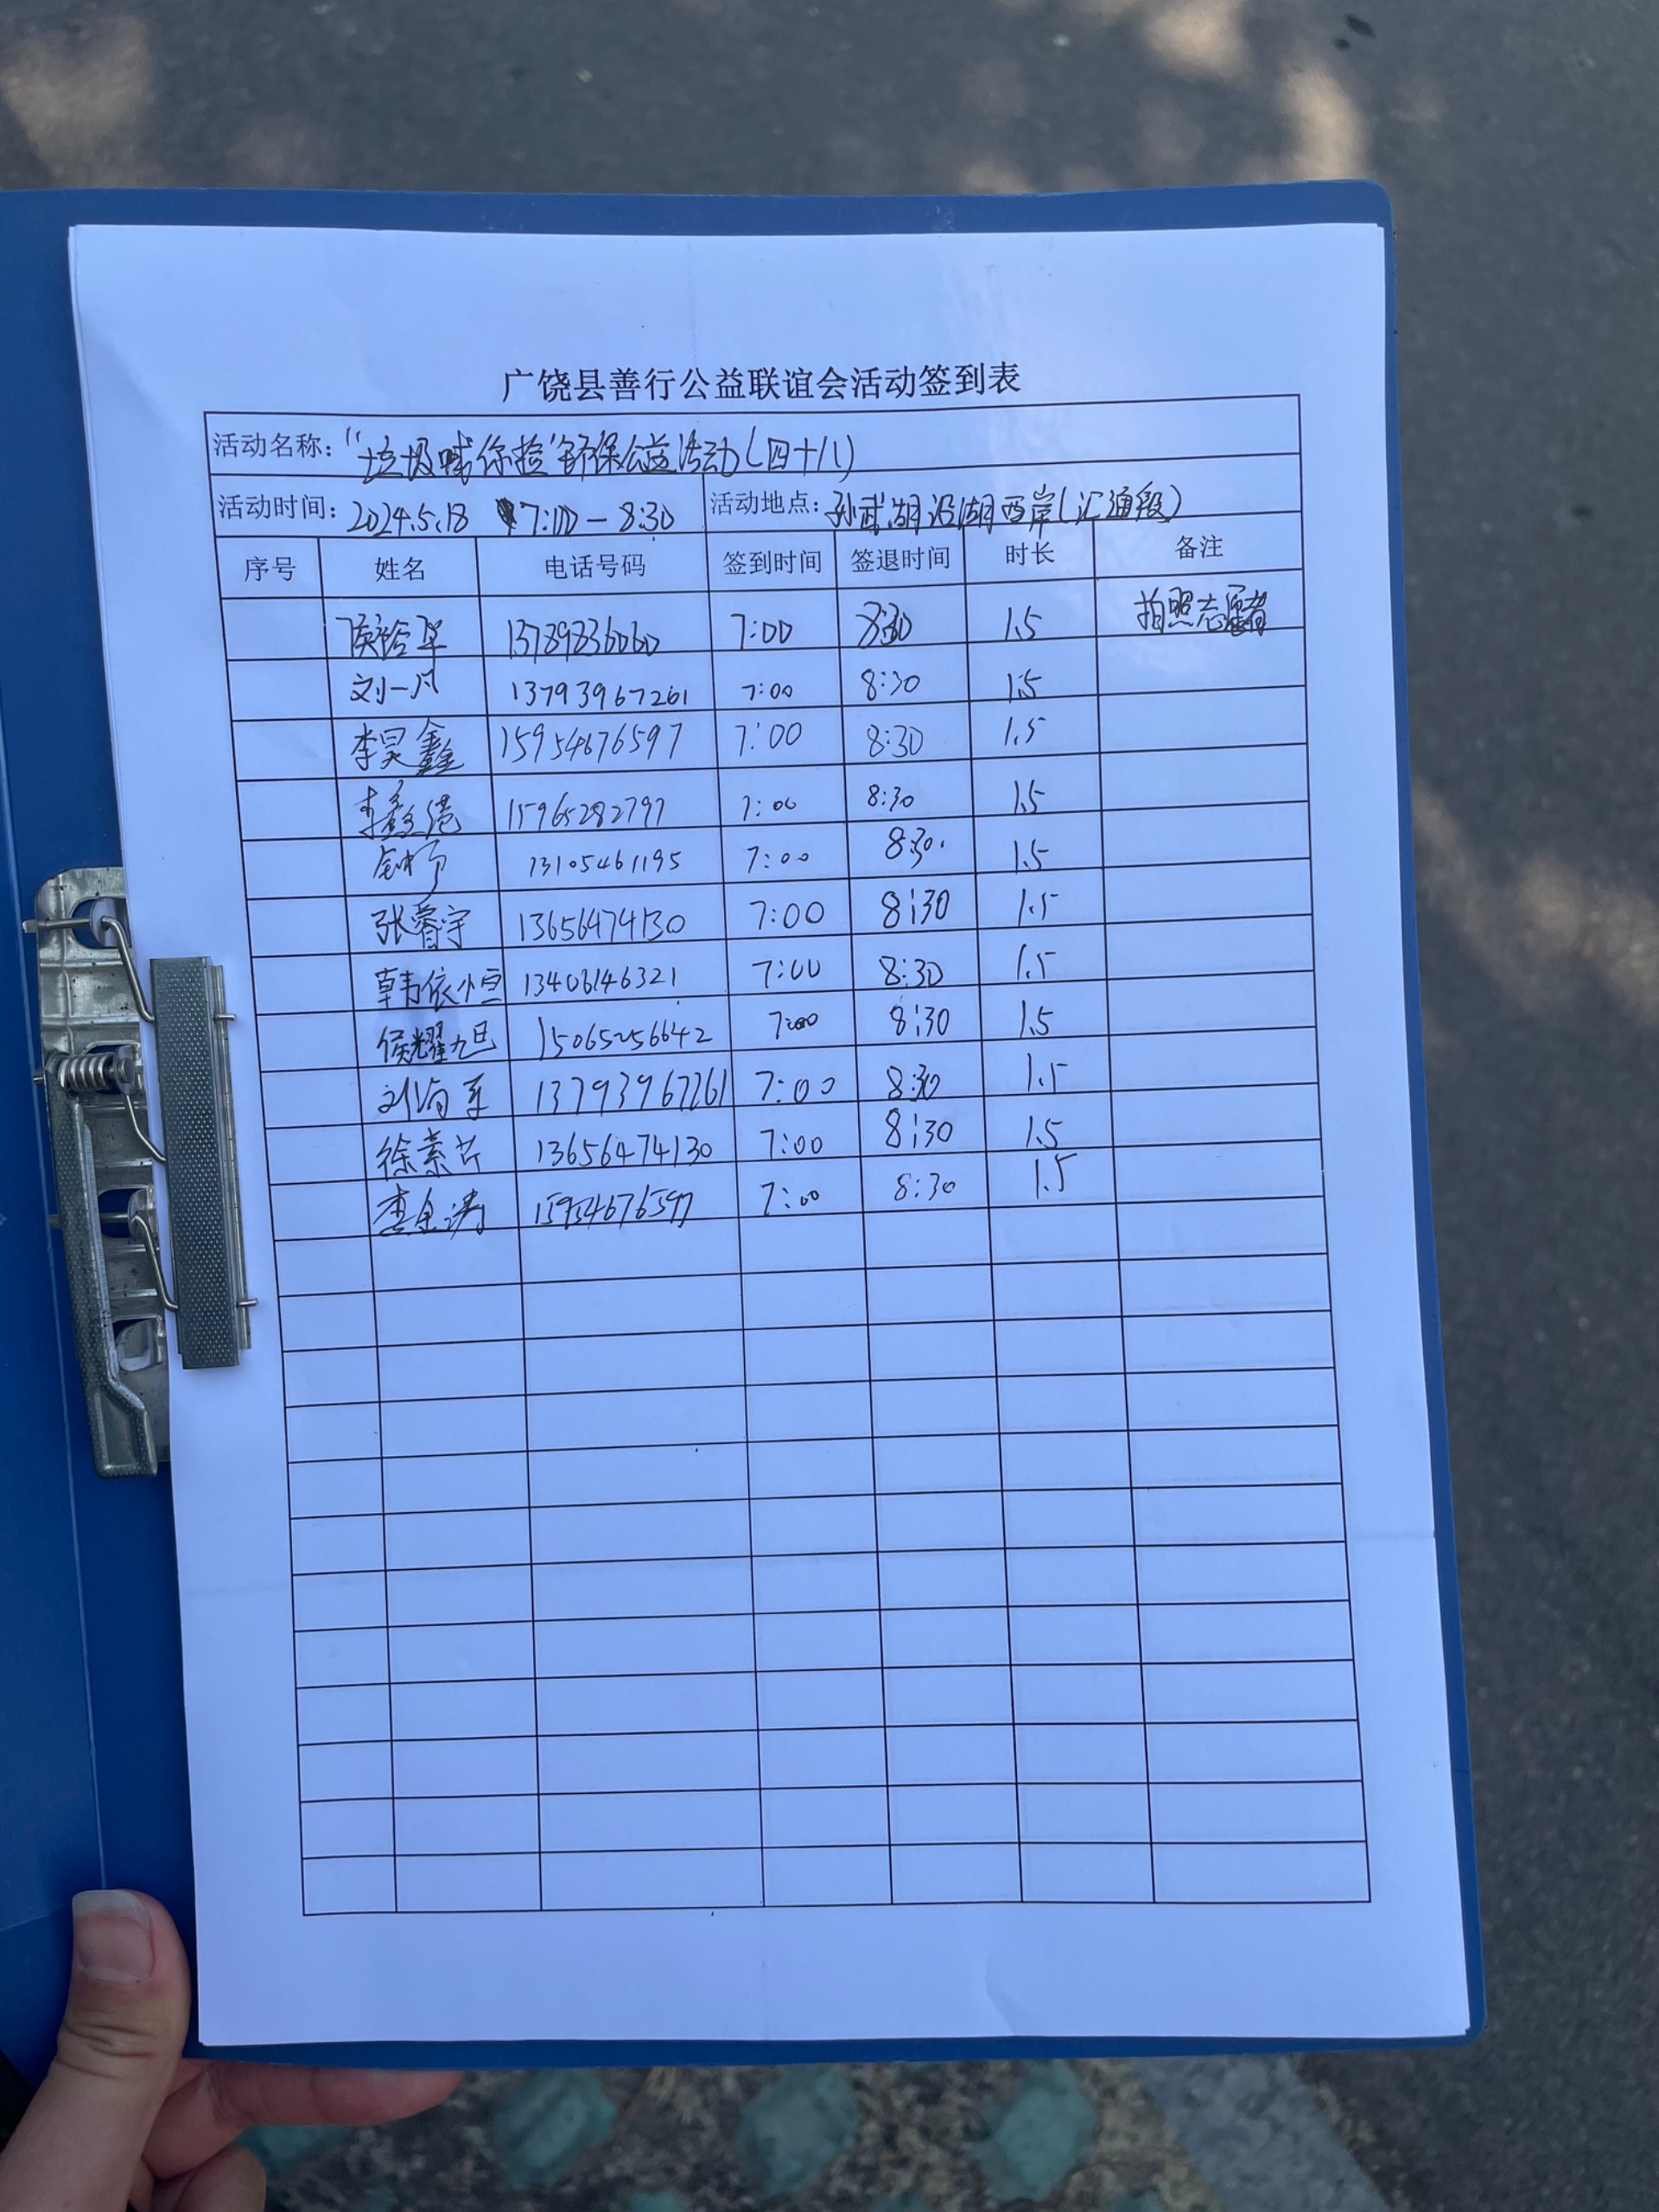 广饶县善行公益联谊会活动签到表
活动名称："垃圾喊你捡"环保公益活动(四十八)
活动时间：2024.5.18 7:00-8:30 活动地点：孙武湖沿湖西岸(汇通段)
序号 姓名 电话号码 签到时间 签退时间 时长 备注
13789836060 7:00 8:30 1.5 拍照志愿者
刘一凡 13793967261 7:00 8:30 1.5
李昊鑫 15954676597 7:00 8:30 1.5
李 15965282797 7:00 8:30 1.5
钟 13105461195 7:00 8:30. 1.5
张睿宇 13656474130 7:00 8:30 1.5
韩依恒 13406146321 7:00 8:30 1.5
侯耀旭 15065256642 7:00 8:30 1.5
刘 13793967261 7:00 8:30 1.5
徐素芹 13656474130 7:00 8:30 1.5
李金涛 15954676597 7:00 8:30 1.5